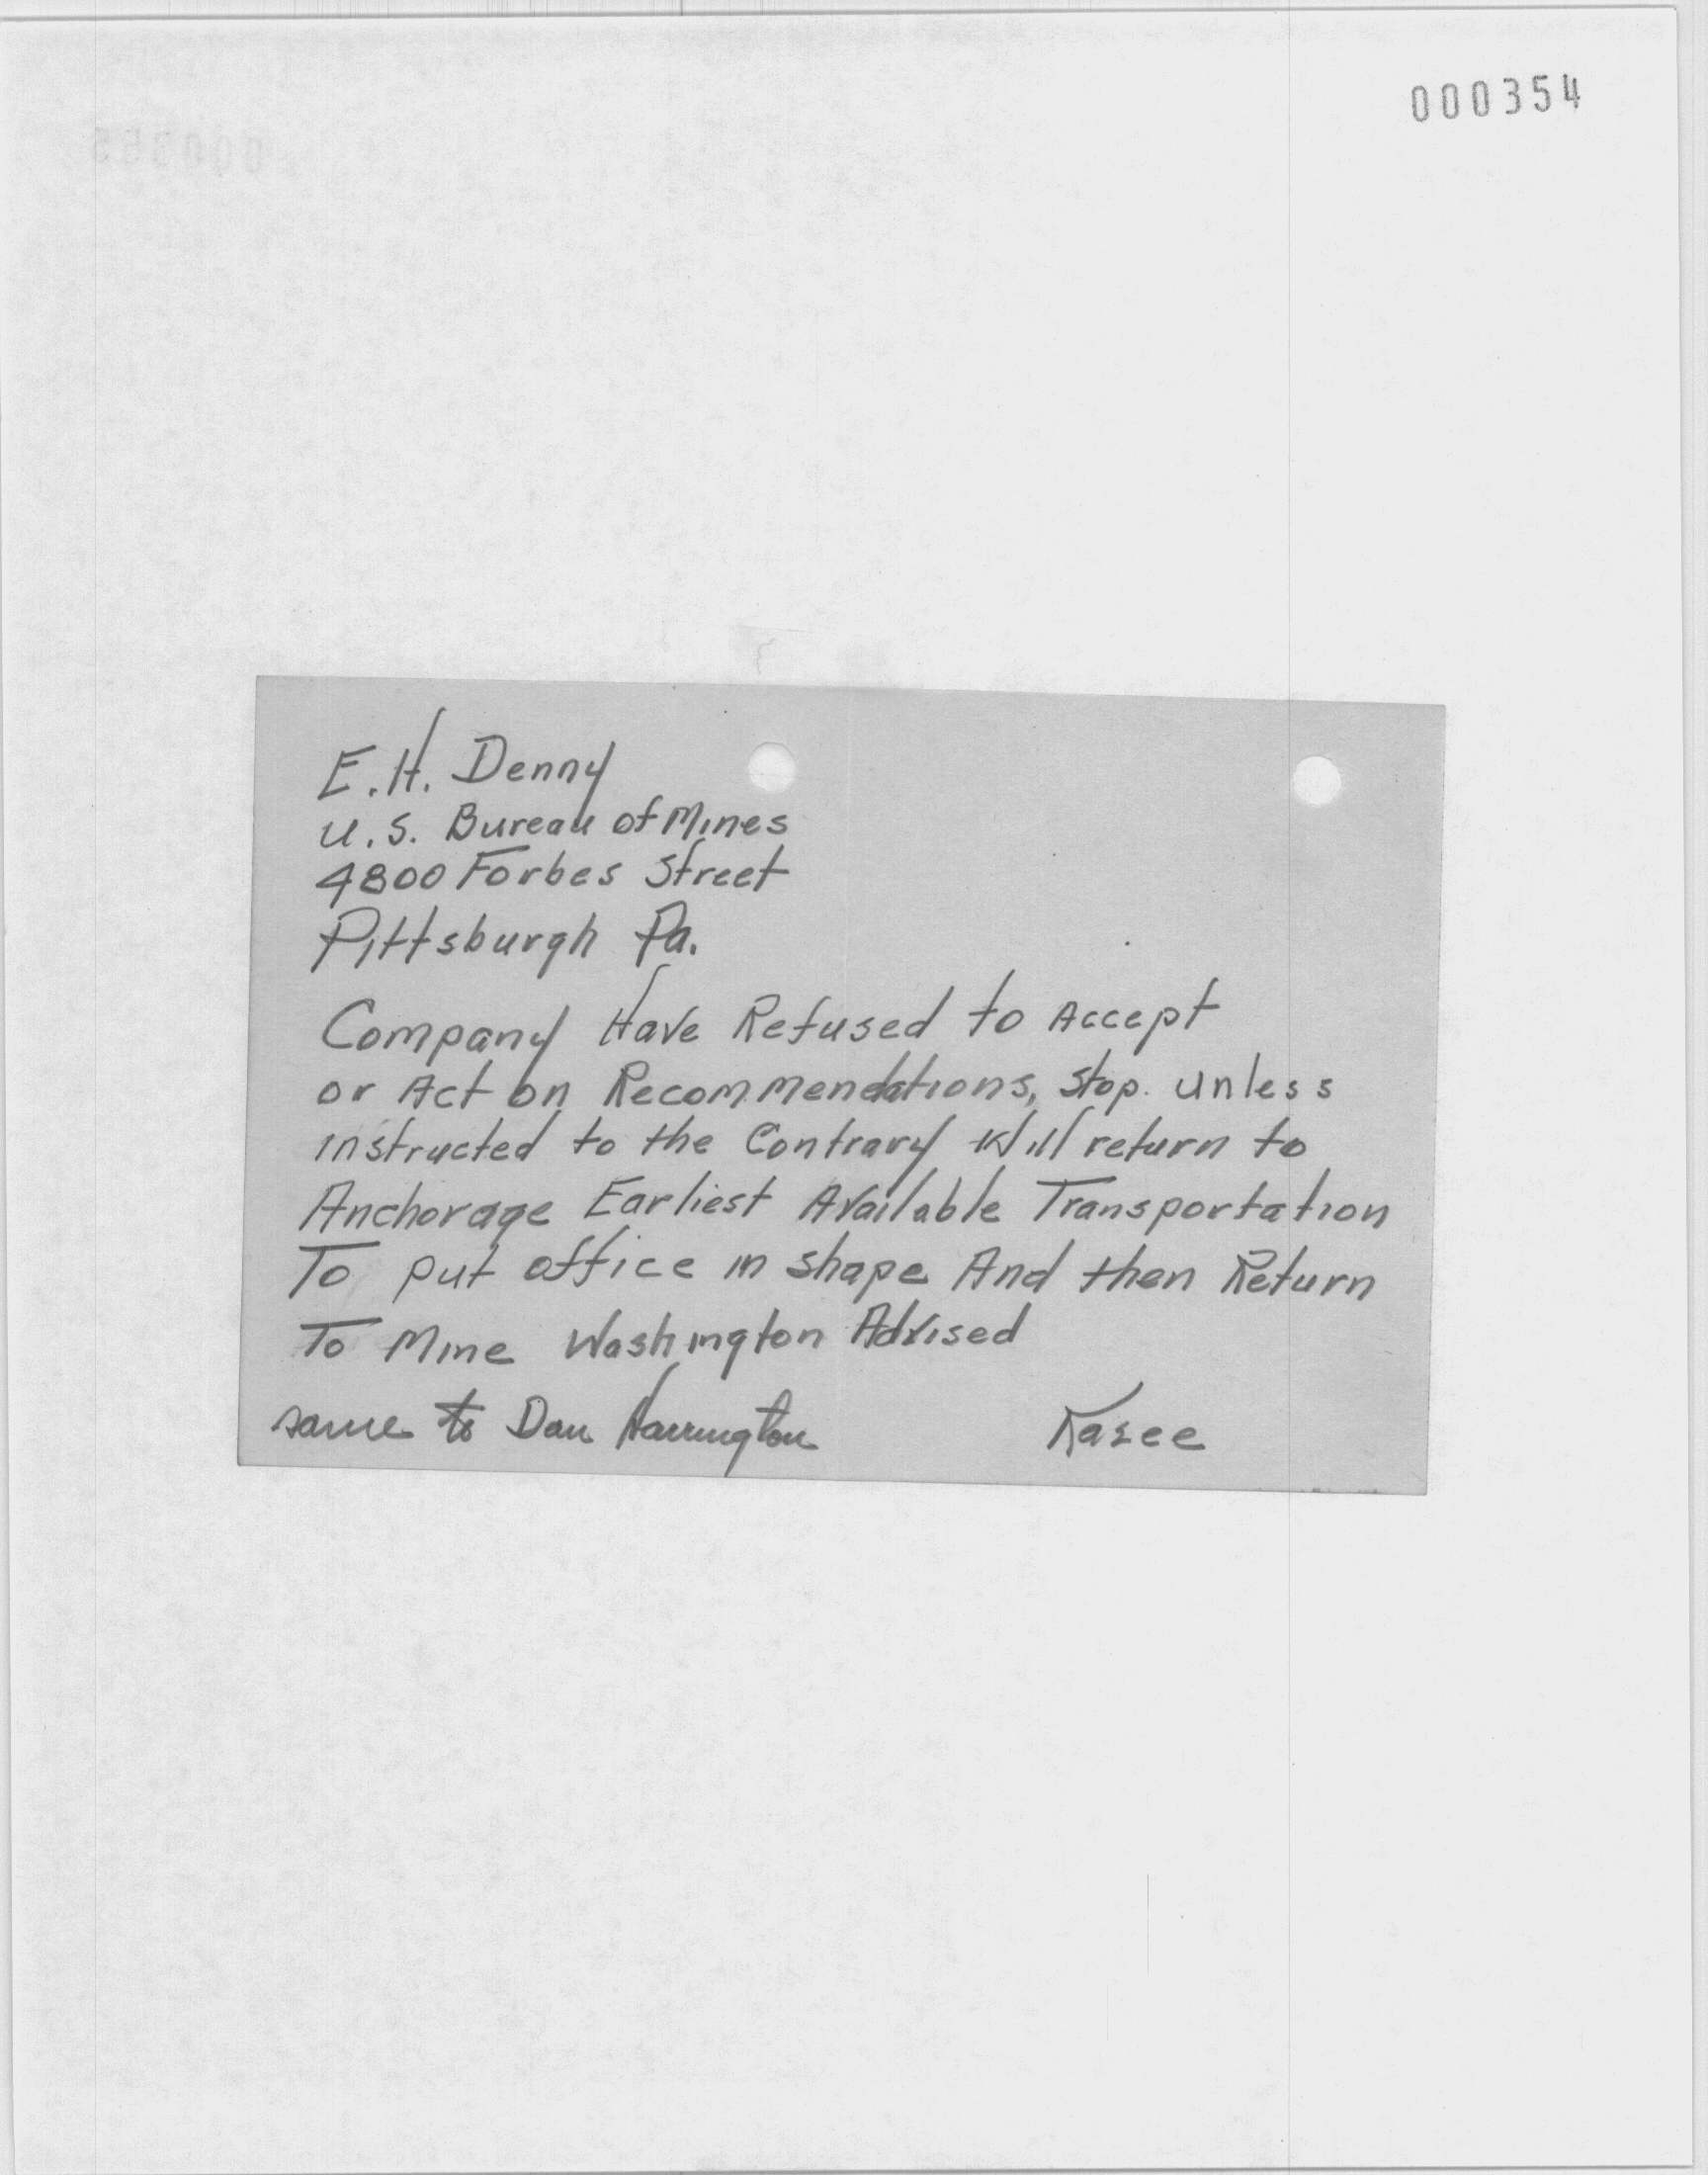 000354
E.H. Denny
U.S. Bureau of Mines
4800 Forbes Street
Pittsburgh Pa.
Company Have Refused to Accept
or Act on Recommendations, Stop. Unless
instructed to the Contrary Will return to
Anchorage Earliest Available Transportation
To put office in shape And then Return
To Mine Washington Advised
same to Dan Harrington Kasee